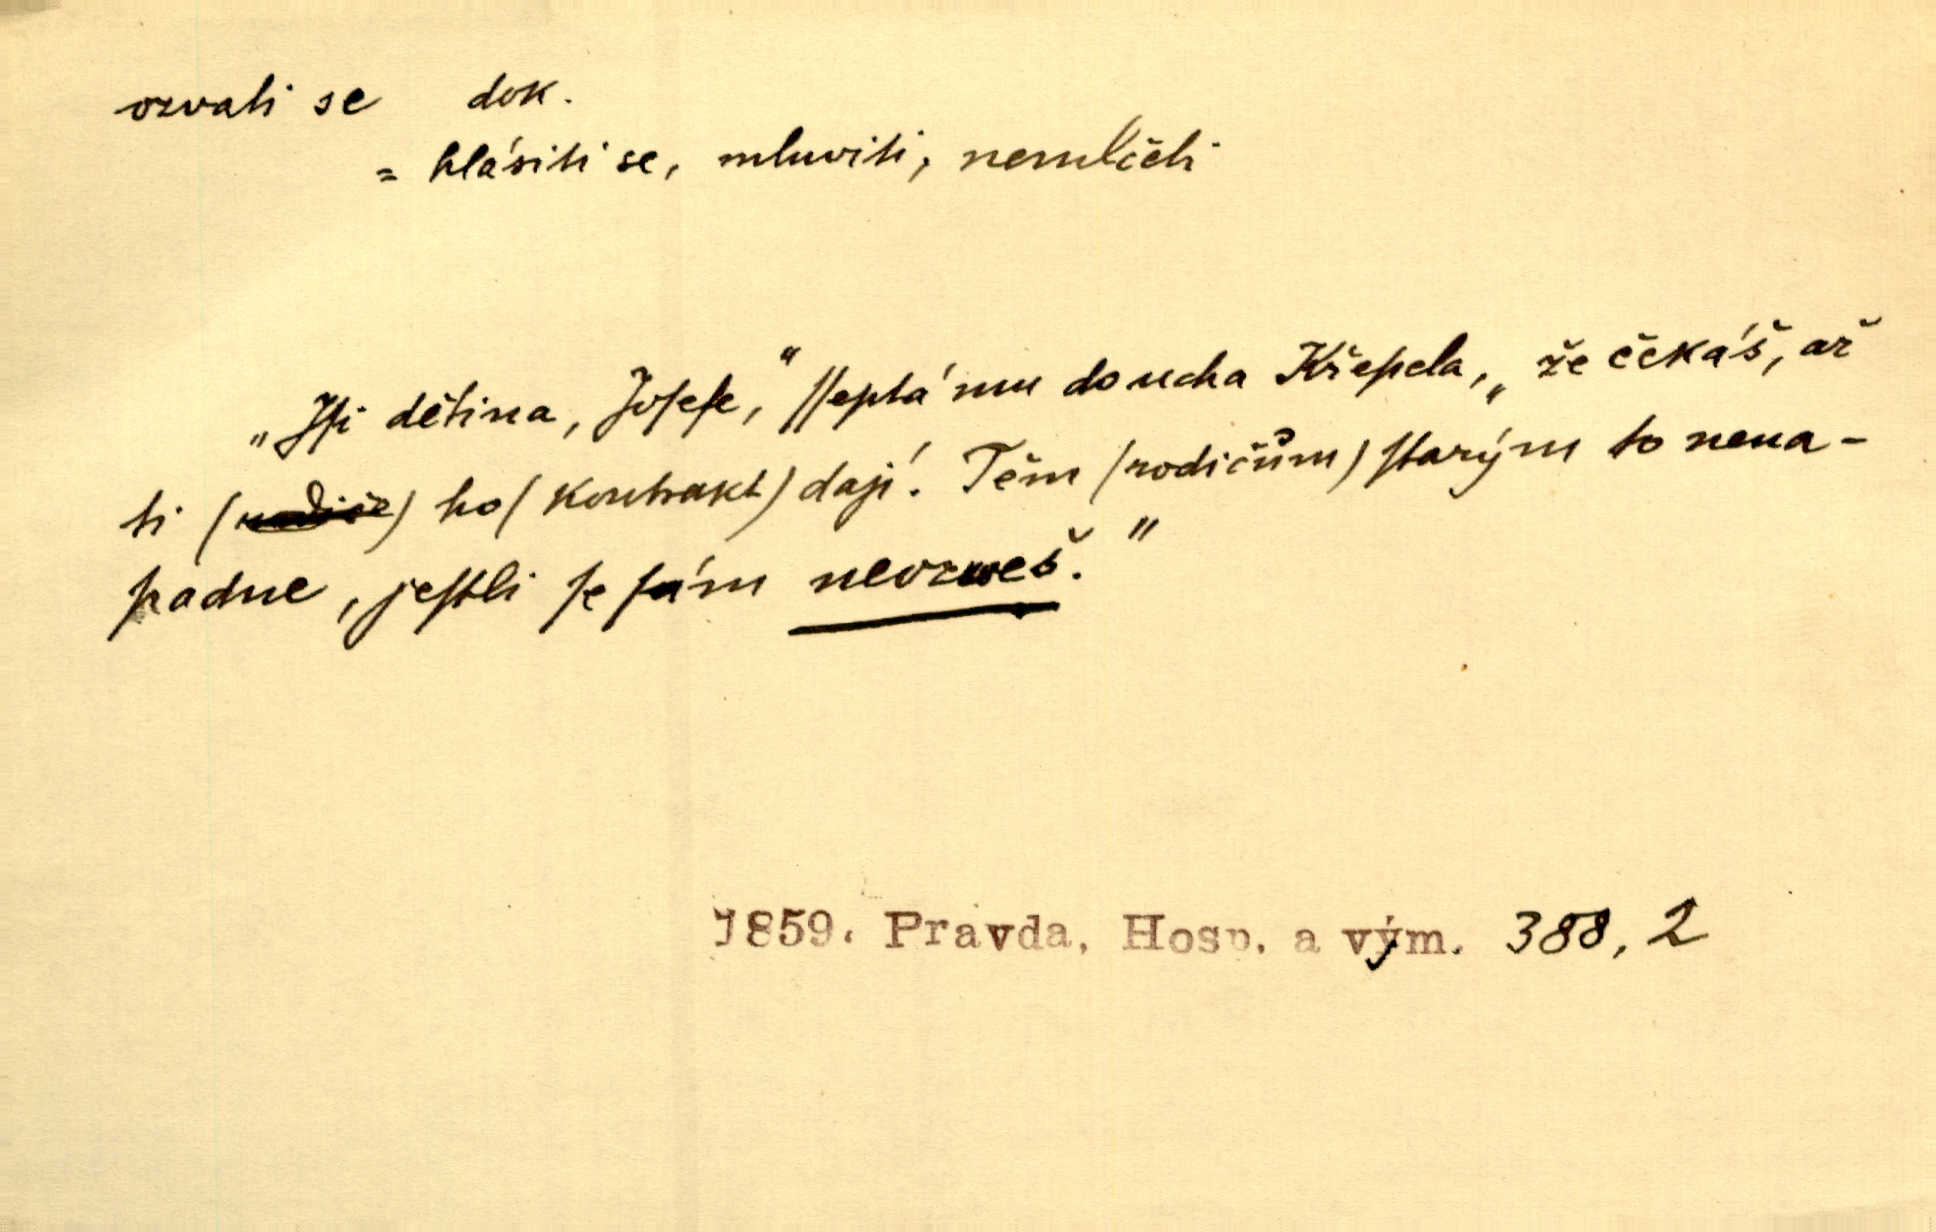 ozvati se dok.
= hlásiti se, mluviti, nemlčeti
„Jſi dětina, Joſefe,“ ſſeptá mu do ucha Křepela, „že čekáš, až
ti (rodiče) ho (kontrakt) dají! Těm (rodičům) ſtarým to nena-
padne, jeſtli ſe ſám neozweš.“
1859. Pravda, Hosp. a vým. 388, 2